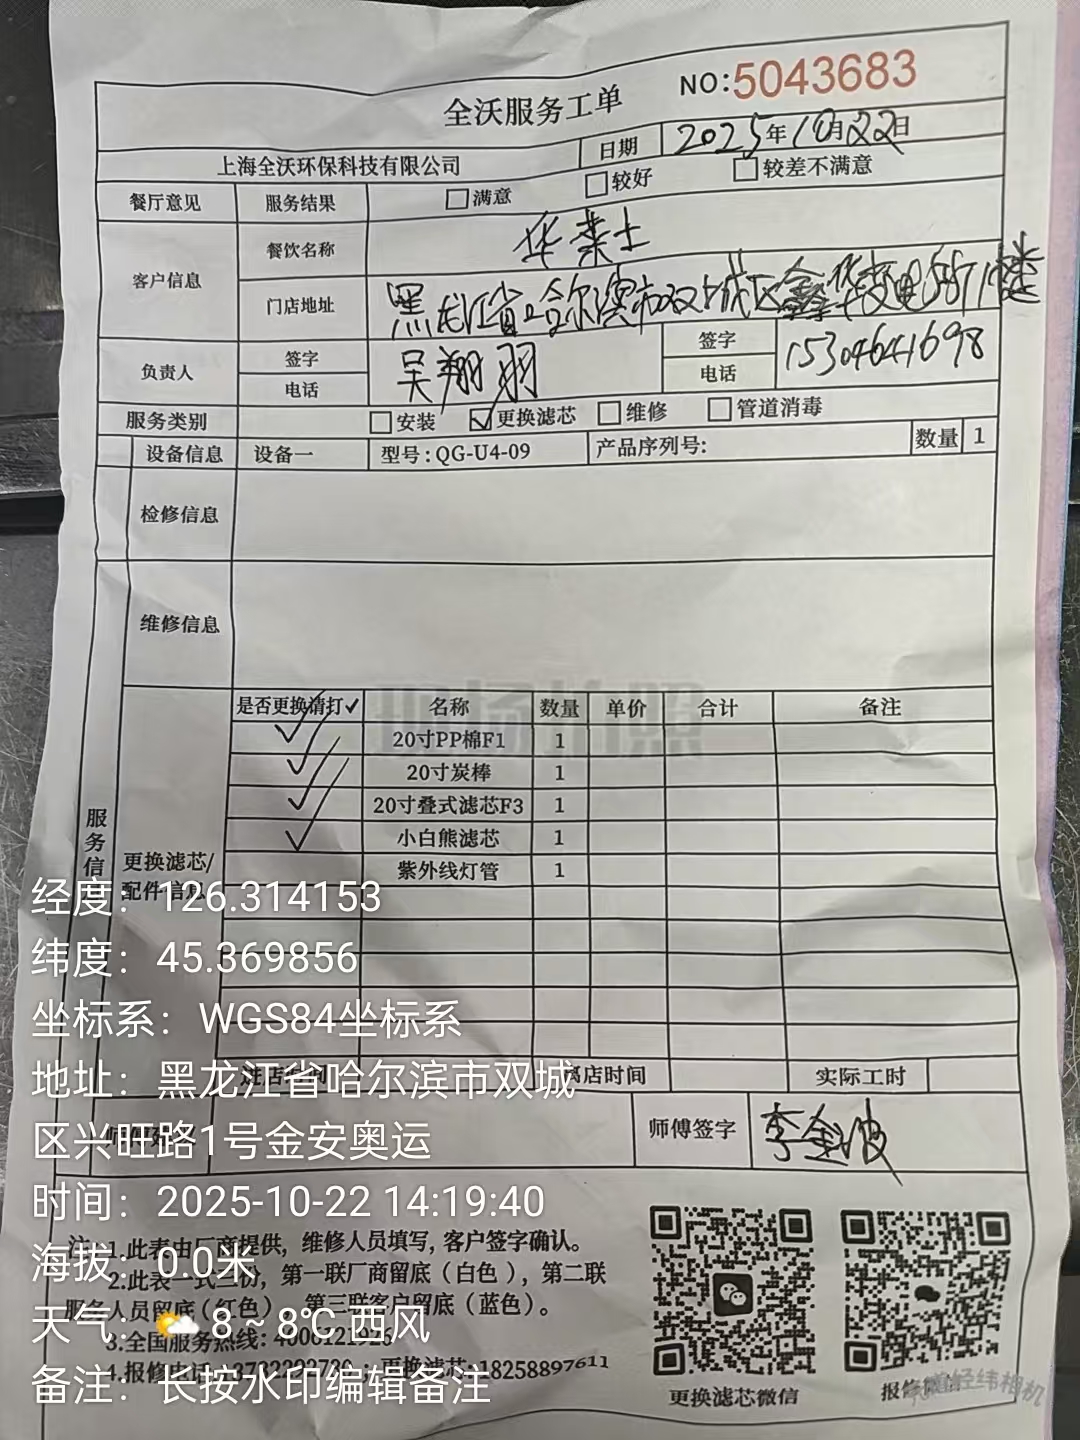 全沃服务工单
NO:5043683
上海全沃环保科技有限公司 日期 2025年10月22日
餐厅意见 服务结果 满意 较好 较差不满意
客户信息 餐饮名称 华莱士
门店地址 黑龙江省哈尔滨市双城区鑫华 1楼
负责人 签字 吴翔羽 签字
电话 电话 15304641698
服务类别 安装 ✓更换滤芯 维修 管道消毒
设备信息 设备一 型号:QG-U4-09 产品序列号: 数量 1
检修信息
维修信息
服务信
更换滤芯/
配件信息
是否更换请打✓ 名称 数量 单价 合计 备注
✓ 20寸PP棉F1 1
✓ 20寸炭棒 1
✓ 20寸叠式滤芯F3 1
✓ 小白熊滤芯 1
紫外线灯管 1
现场拍照
进店时间 离店时间 实际工时
师傅签字 李金波
注:1.此表由厂商提供, 维修人员填写, 客户签字确认。
2.此表一式三份, 第一联厂商留底(白色), 第二联
服务人员留底(红色), 第三联客户留底(蓝色)。
3.全国服务热线: 4008121926
4.报修电话 更换滤芯:18258897611
更换滤芯微信
报修微信
经度: 126.314153
纬度: 45.369856
坐标系: WGS84坐标系
地址: 黑龙江省哈尔滨市双城
区兴旺路1号金安奥运
时间: 2025-10-22 14:19:40
海拔: 0.0米
天气: 8 ~ 8℃ 西风
备注: 长按水印编辑备注
经纬相机